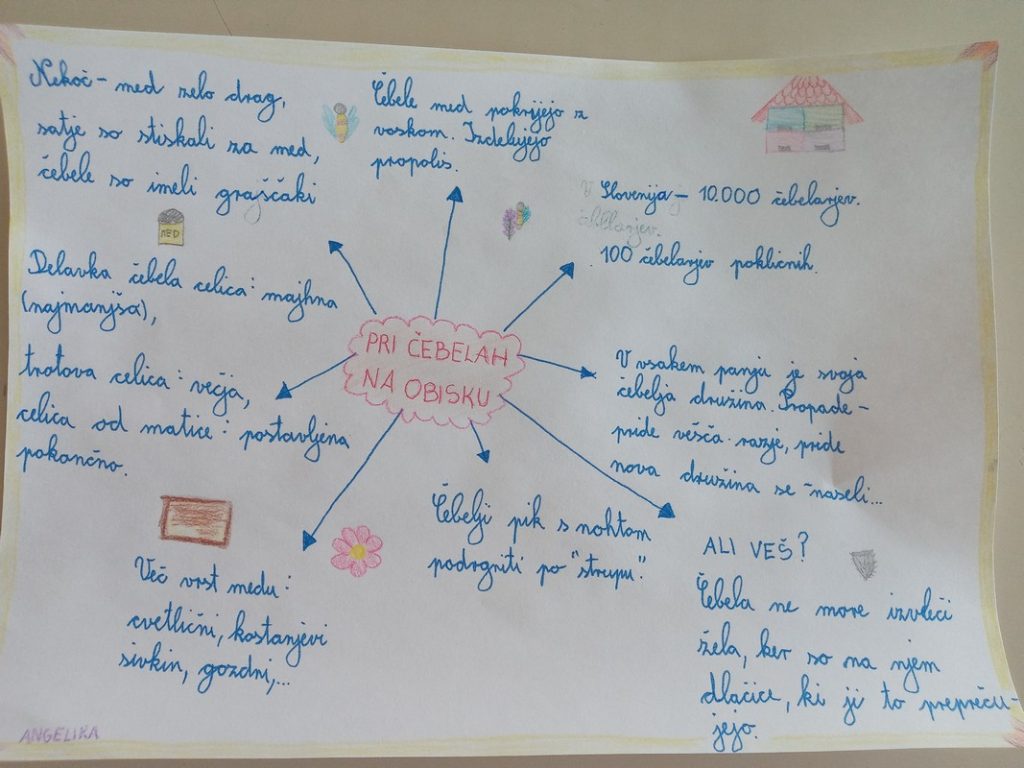 Nekoč - med zelo drag,
satje so stiskali za med,
čebele so imeli graščaki
Čebele med pokrijejo z
voskom. Izdelujejo
propolis.
V Slovenija - 10.000 čebelarjev.
čebelarjev.
100 čebelarjev pokličnih.
MED
Delavka čebela celica: majhna
(najmanjša),
trotova celica: večja,
celica od matice: postavljena
pokončno.
PRI ČEBELAH
NA OBISKU
V vsakem panju je svoja
čebelja družina. Propade -
pride vešča razje, pride
nova družina se naseli...
Več vrst medu:
cvetlični, kostanjevi
sivkin, gozdni,...
Čebelji pik s nohtom
podrgniti po "strupu".
ALI VEŠ?
Čebela ne more izvleči
žela, ker so na njem
dlačice, ki ji to prepreču-
jejo.
ANGELIKA